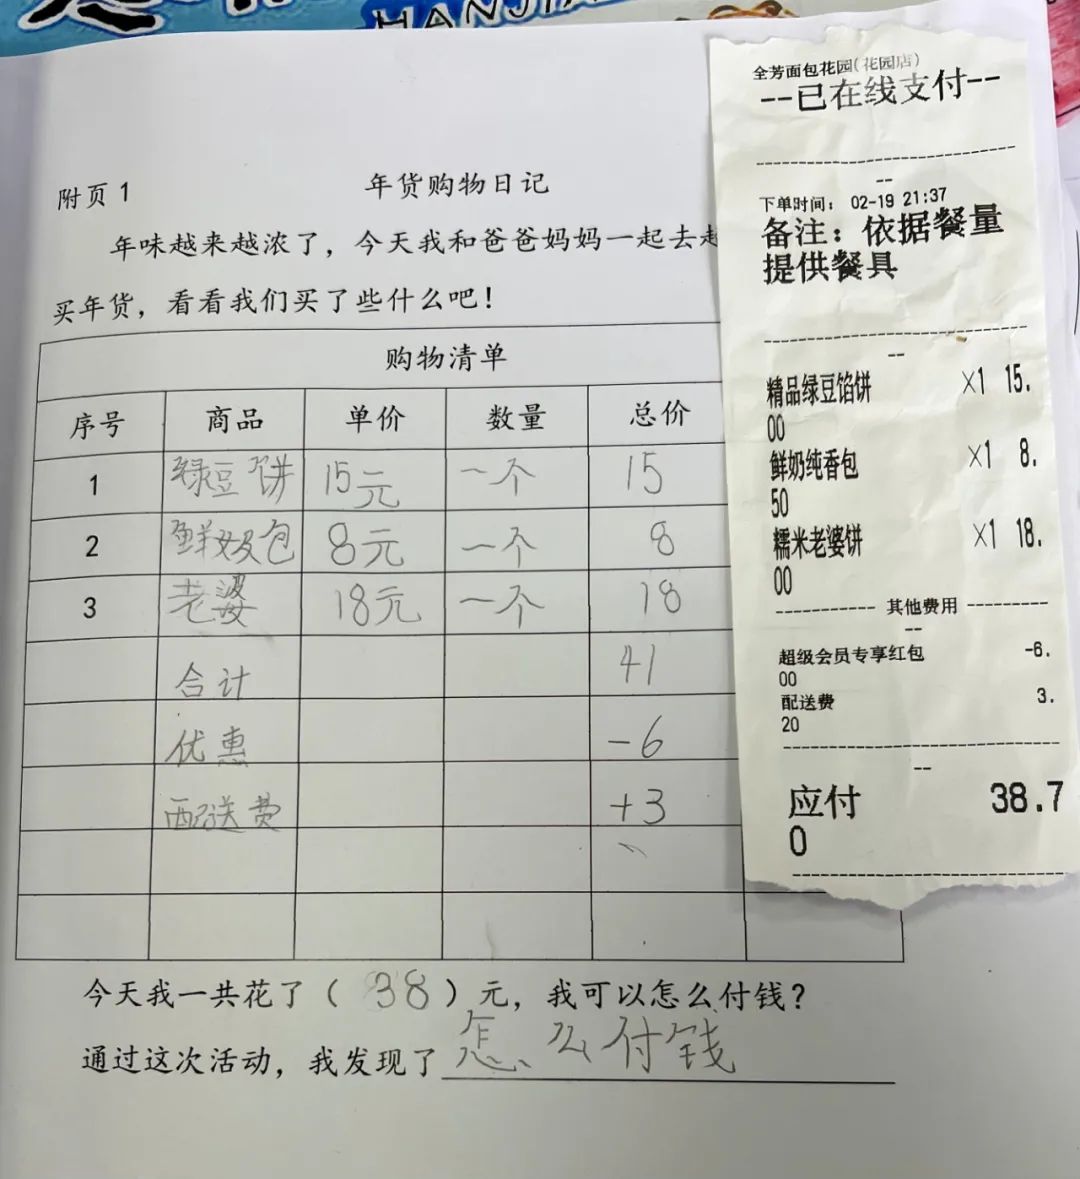 HANJIA
附页1
年货购物日记
年味越来越浓了，今天我和爸爸妈妈一起去
买年货，看看我们买了些什么吧！
购物清单
序号 商品 单价 数量 总价
1 绿豆饼 15元 一个 15
2 鲜奶包 8元 一个 8
3 老婆 18元 一个 18
合计 41
优惠 -6
配送费 +3
今天我一共花了（38）元，我可以怎么付钱？
通过这次活动，我发现了怎么付钱
全芳面包花园(花园店)
--已在线支付--
--
下单时间： 02-19 21:37
备注：依据餐量
提供餐具
--
精品绿豆馅饼 X1 15.
00
鲜奶纯香包 X1 8.
50
糯米老婆饼 X1 18.
00
----------- 其他费用 ---------
--
超级会员专享红包 -6.
00
配送费 3.
20
--
应付 38.7
0